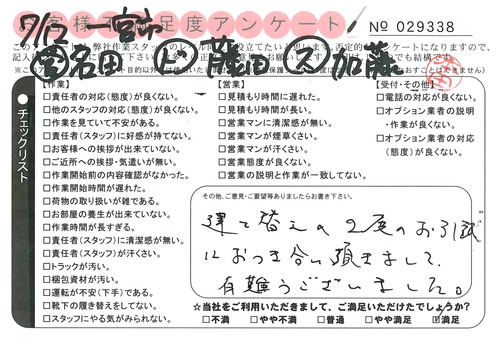 お客様不満足度アンケート
No 029338
7/12 一宮市
営 名田 ビ 藤田 ス 加藤
チェックリスト
【作業】
□責任者の対応(態度)が良くない。
□他のスタッフの対応(態度)が良くない。
□作業を見ていて不安がある。
□責任者(スタッフ)に好感が持てない。
□お客様への挨拶が出来ていない。
□ご近所への挨拶・気遣いが無い。
□作業開始前の内容確認がなかった。
□作業開始時間が遅れた。
□荷物の取り扱いが雑である。
□お部屋の養生が出来ていない。
□作業時間が長すぎる。
□責任者(スタッフ)に清潔感が無い。
□責任者(スタッフ)が汗くさい。
□トラックが汚い。
□梱包資材が汚い。
□運転が不安(下手)である。
□靴下の履き替えをしてない。
□スタッフにやる気がみられない。
【営業】
□見積もり時間に遅れた。
□見積もり時間が長い。
□営業マンに清潔感が無い。
□営業マンが煙草くさい。
□営業マンが汗くさい。
□営業態度が良くない。
□営業の説明と作業が一致してない。
【受付・その他】
□電話の対応が良くない。
□オプション業者の説明
・作業が良くない。
□オプション業者の対応
(態度)が良くない。
その他、ご意見・ご要望等ありましたらお書き下さい。
建て替えの2度のお引越
におつき合い頂きまして、
有難うございました。
☆当社をご利用いただきまして、ご満足いただけたでしょうか?
□不満 □やや不満 □普通 □やや満足 ☑満足